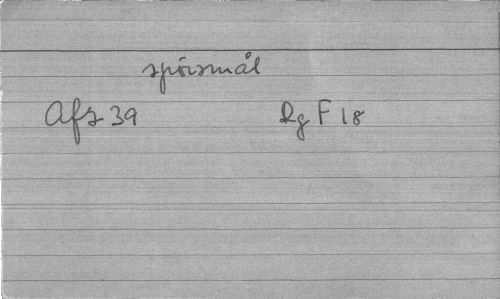 spörsmål
Afz 39 Rg F 18